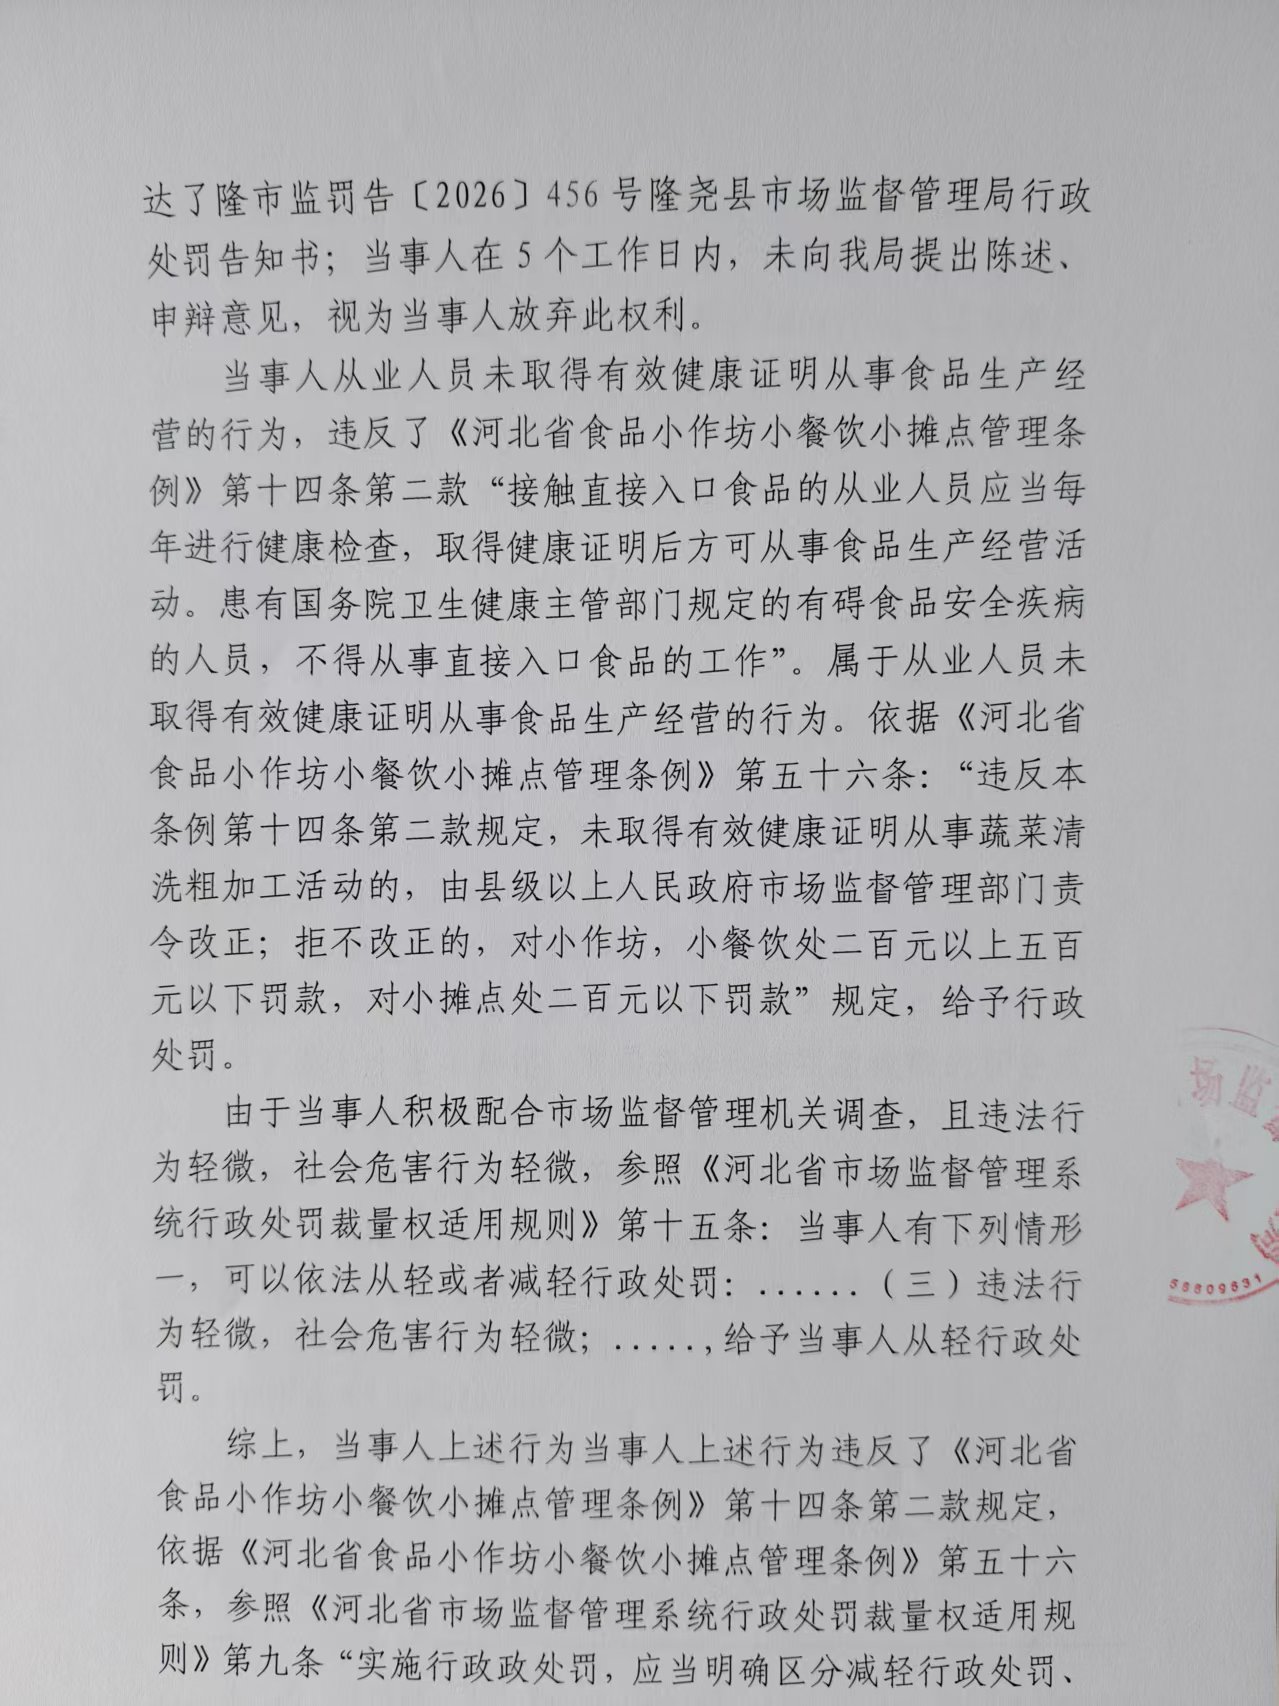 达了隆市监罚告〔2026〕456号隆尧县市场监督管理局行政
处罚告知书；当事人在5个工作日内，未向我局提出陈述、
申辩意见，视为当事人放弃此权利。
当事人从业人员未取得有效健康证明从事食品生产经
营的行为，违反了《河北省食品小作坊小餐饮小摊点管理条
例》第十四条第二款“接触直接入口食品的从业人员应当每
年进行健康检查，取得健康证明后方可从事食品生产经营活
动。患有国务院卫生健康主管部门规定的有碍食品安全疾病
的人员，不得从事直接入口食品的工作”。属于从业人员未
取得有效健康证明从事食品生产经营的行为。依据《河北省
食品小作坊小餐饮小摊点管理条例》第五十六条：“违反本
条例第十四条第二款规定，未取得有效健康证明从事蔬菜清
洗粗加工活动的，由县级以上人民政府市场监督管理部门责
令改正；拒不改正的，对小作坊，小餐饮处二百元以上五百
元以下罚款，对小摊点处二百元以下罚款”规定，给予行政
处罚。
由于当事人积极配合市场监督管理机关调查，且违法行
为轻微，社会危害行为轻微，参照《河北省市场监督管理系
统行政处罚裁量权适用规则》第十五条：当事人有下列情形
一，可以依法从轻或者减轻行政处罚：......（三）违法行
为轻微，社会危害行为轻微；.....,给予当事人从轻行政处
罚。
综上，当事人上述行为当事人上述行为违反了《河北省
食品小作坊小餐饮小摊点管理条例》第十四条第二款规定，
依据《河北省食品小作坊小餐饮小摊点管理条例》第五十六
条，参照《河北省市场监督管理系统行政处罚裁量权适用规
则》第九条“实施行政政处罚，应当明确区分减轻行政处罚、
场监
58809631